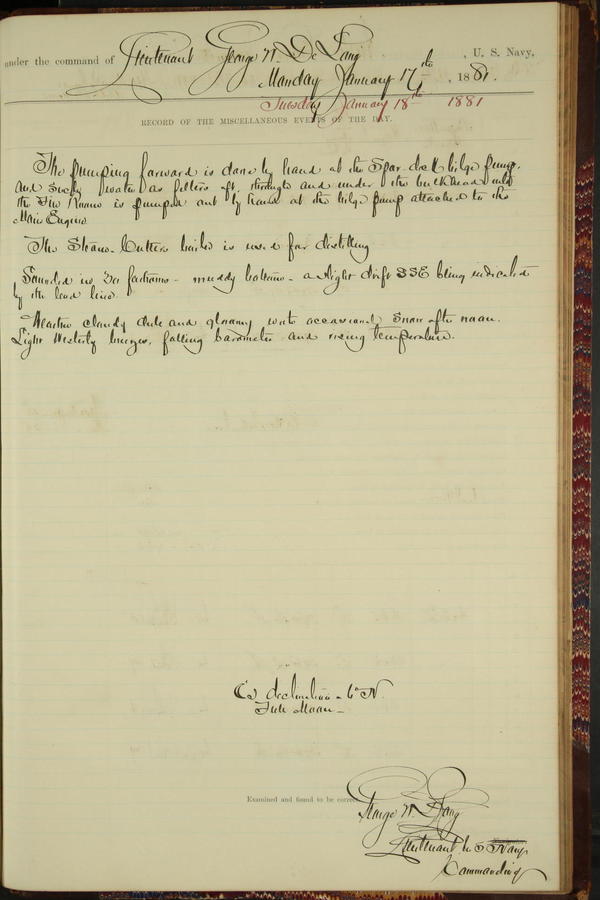 under the command of Lieutenant George W. De Long, U. S. Navy,
Monday January 17th, 1881.
Tuesday January 18th 1881
RECORD OF THE MISCELLANEOUS EVENTS OF THE DAY.
The pumping forward is done by hand at the Spar deck bilge pump.
and such water as filters aft, through and under the bulkhead into
the Fire Room is pumped out by hand at the bilge pump attached to the
Main Engine
The Steam-Cutters boiler is used for distilling
Sounded in fathoms - muddy bottom - a slight drift SSE being indicated
by the lead line.
Weather cloudy dull and gloomy with occasional snow after noon.
Light Westerly breezes, falling barometer and rising temperature.
declination - 6° N.
Full Moon -
Examined and found to be correct.
George W. De Long
Lieutenant U.S. Navy
Commanding